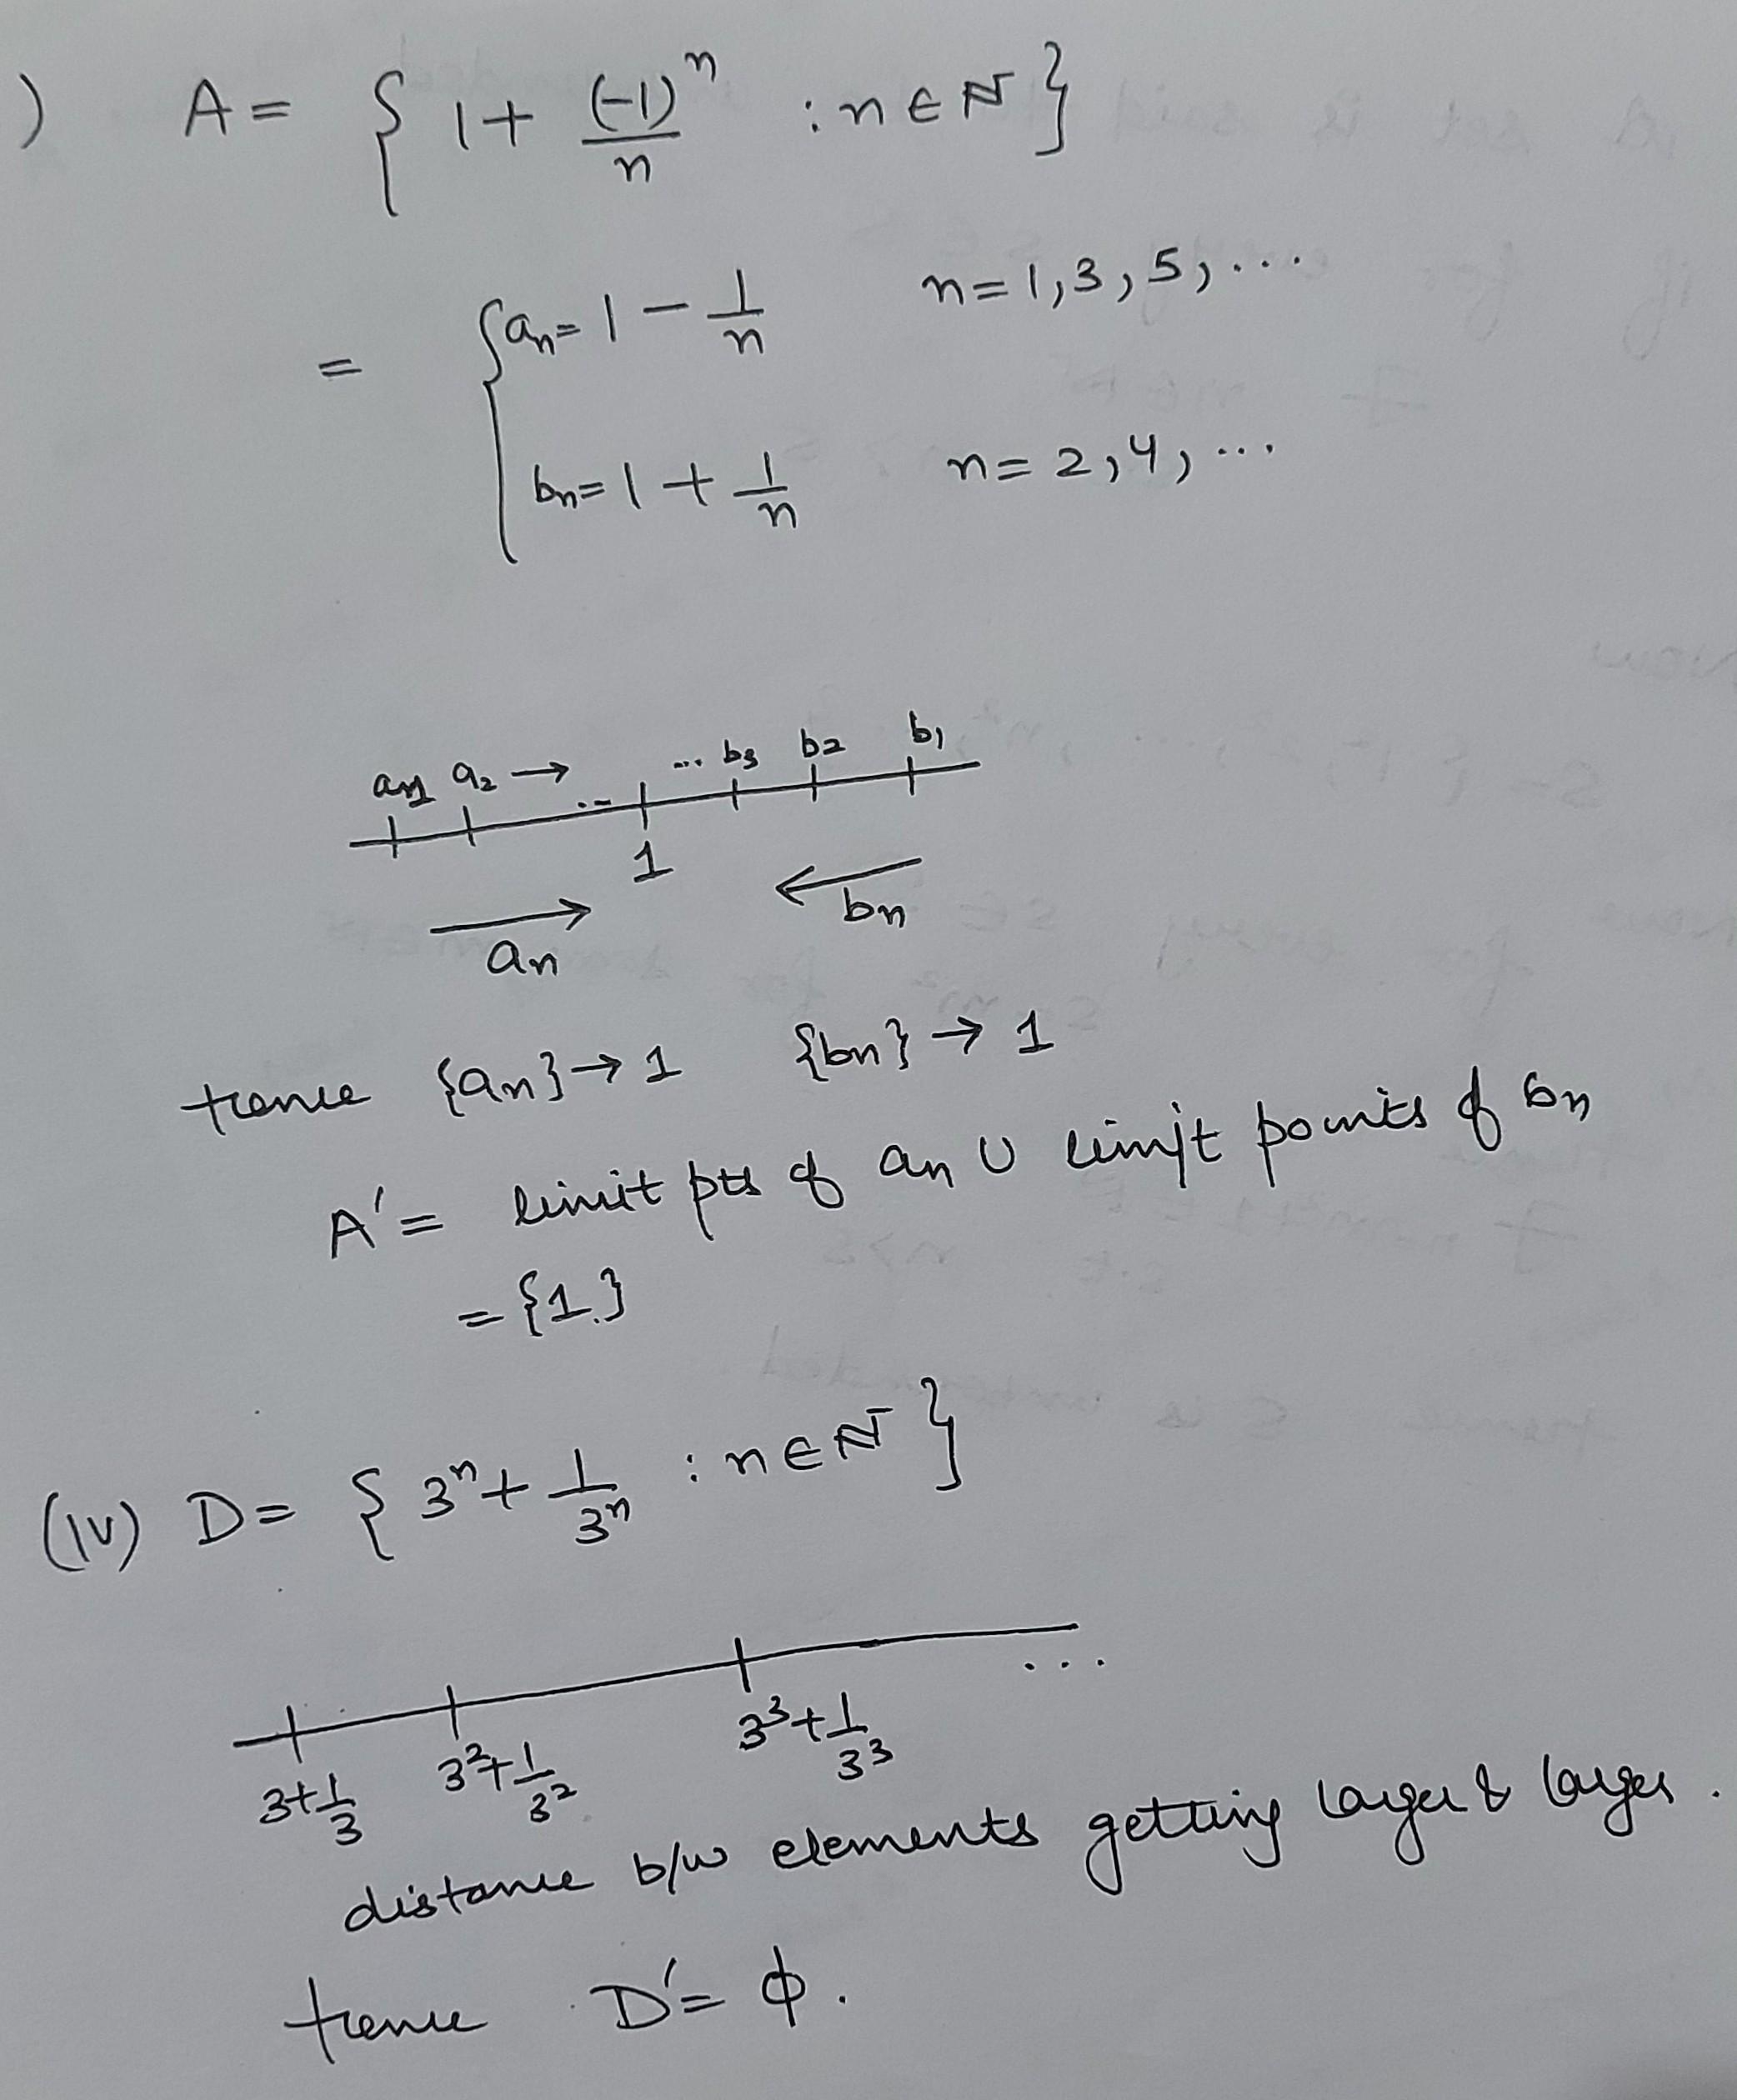 ) A = { 1 + (-1)^n / n : n ∈ N }
= { an = 1 - 1/n n = 1, 3, 5, ...
bn = 1 + 1/n n = 2, 4, ...
a1 a2 → .. ... b3 b2 b1
1
an → ← bn
Hence {an} → 1 {bn} → 1
A' = limit pts of an ∪ limit points of bn
= {1}
(iv) D = { 3^n + 1/3^n : n ∈ N }
3 + 1/3 3^2 + 1/3^2 3^3 + 1/3^3 ...
distance b/w elements getting larger & larger.
Hence D' = ϕ.